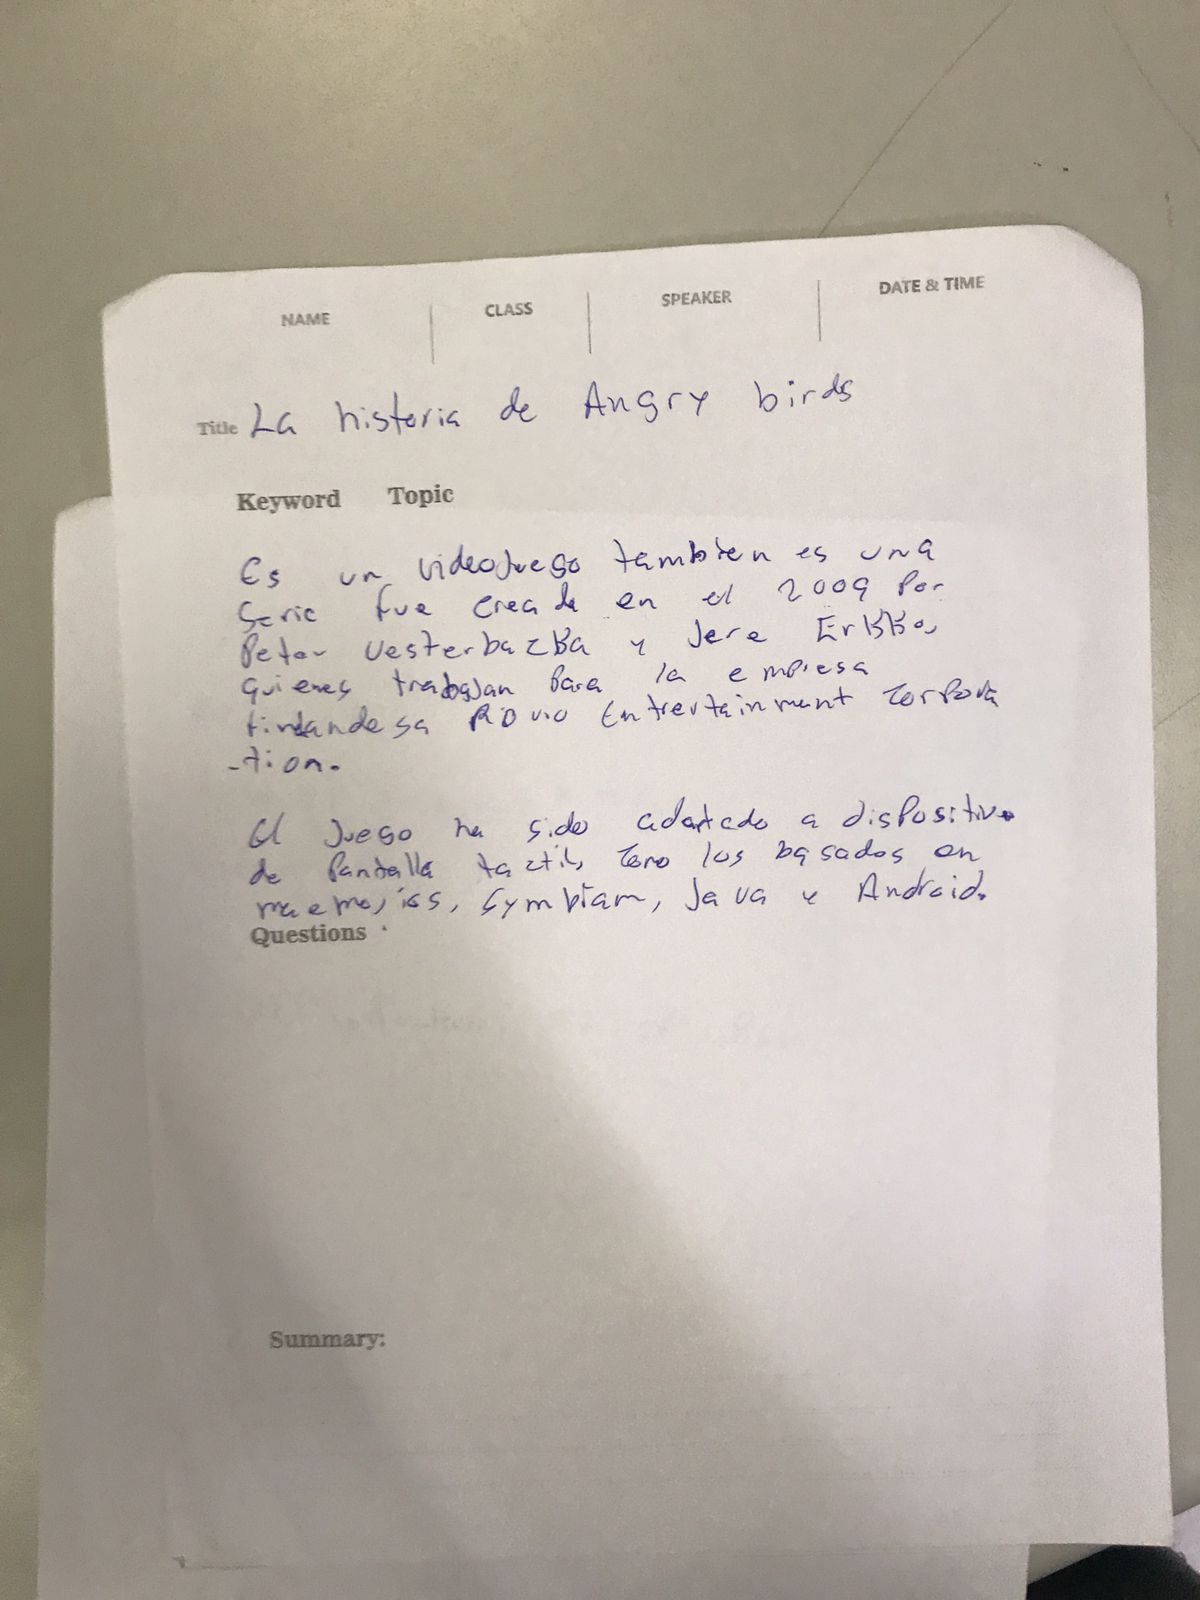 NAME CLASS SPEAKER DATE & TIME
Title La historia de Angry birds
Keyword Topic
Es un videoJuego tambien es una
Serie fue creada en el 2009 Por
Peter Vesterbacka y Jere Erkko,
quienes trabajan Para la empresa
finlandesa ROVIO Entrertainment Corpora
-tion.
El Juego ha sido adaptado a dispositivo
de Pantalla tactil, Como los basados en
maemo, ios, Symbiam, Java y Android.
Questions
Summary: